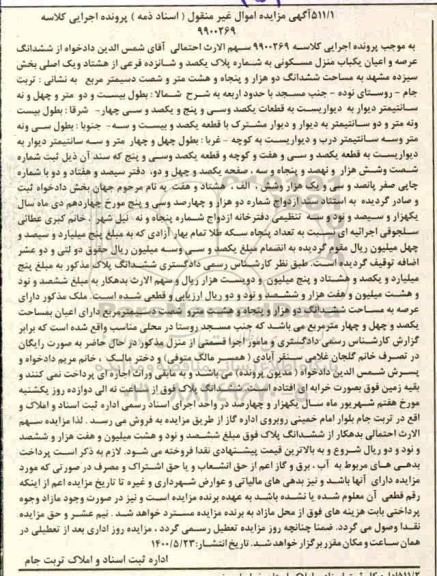 ۵۱۱/۱آگهی مزایده اموال غیر منقول ( اسناد ذمه ) پرونده اجرایی کلاسه
۹۹۰۰۲۶۹
به موجب پرونده اجرایی کلاسه ۹۹۰۰۲۶۹ سهم الارث احتمالی آقای شمس الدین دادخواه از ششدانگ
عرصه و اعیان یکباب منزل مسکونی به شماره پلاک یکصد و شانزده فرعی از هشتاد ویک اصلی بخش
سیزده مشهد به مساحت ششدانگ دو هزار و پنجاه و هشت متر و شصت دسیمتر مربع به نشانی : تربت
جام - روستای نوده - جنب مسجد با حدود اربعه به شرح شمالا : بطول بیست و دو متر و چهل و نه
سانتیمتر دیوار به دیواریست به قطعات یکصد وسی و پنج و یکصد و سی چهار- شرقا : بطول بیست
ونه متر و دو سانتیمتر به دیوار و دیوار مشترک با قطعه یکصد و بیست و سه- جنوبا : بطول سی ونه
متر وسه سانتیمتر درب و دیواریست به کوچه - غربا : بطول چهل و چهار متر و سه سانتیمتر دیوار به
دیواریست به قطعه یکصد و سی و هفت و کوچه و قطعه یکصد وسی و پنج که سند آن ذیل ثبت شماره
شصت وشش هزار و نهصد و پنجاه و سه ، صفحه یکصد و چهل و دو، دفتر سیصد و هفتاد و دو با شماره
چاپی صفر پانصد و سی و یک هزار وشش ، الف ، هشتاد و هفت به نام مرحوم جهان بخش دادخواه ثبت
و صادر گردیده به استناد سند ازدواج شماره دو هزار و چهارصد وسی و پنج مورخ چهاردهم دی ماه سال
یکهزار و سیصد و نود و سه تنظیمی دفترخانه ازدواج شماره پنجاه و نه نیل شهر ، خانم کبری عطائی
سلجوقی اجرائیه ای نسبت به تعداد پنجاه سکه طلا تمام بهار آزادی که به مبلغ پنج میلیارد و سیصد و
چهل میلیون ریال مقوم گردیده به انضمام مبلغ یکصد و سی وسه میلیون ریال حقوق دولتی و دو عشر
اضافه توقیف گردیده است. طبق نظر کارشناس رسمی دادگستری ششدانگ پلاک مذکور به مبلغ پنج
میلیارد و یکصد و هشتاد و پنج میلیون و دویست هزار ریال و سهم الارث بدهکار به مبلغ ششصد و نود
و هشت میلیون و هفت هزار و ششصد و نود و دو ریال ارزیابی و قطعی شده است. ملک مذکور دارای
عرصه به مساحت ششدانگ دو هزار و پنجاه و هشت مترو شصت دسیمترمربع دارای اعیان بمساحت
یکصد و چهل و چهار مترمربع می باشد که جنب مسجد روستا در محلی مناسب واقع شده است که برابر
گزارش کارشناس رسمی دادگستری و مامور اجرا قسمتی از منزل مذکور در حال حاضر به صورت رایگان
در تصرف خانم گلجان غلامی سنقر آبادی ( همسر مالک متوفی) و دختر مالک ، خانم مریم دادخواه و
پسرش شمس الدین دادخواه (مدیون پرونده) می باشد و به مابقی وراث اجاره ای پرداخت نمی کنند و
بقیه زمین فوق بصورت خرابه ای افتاده است. ششدانگ پلاک فوق از ساعت نه الی دوازده روز یکشنبه
مورخ هفتم شهریور ماه سال یکهزار و چهارصد در واحد اجرای اسناد رسمی اداره ثبت اسناد و املاک و
اقع در تربت جام بلوار امام خمینی روبروی اداره گاز از طریق مزایده به فروش می رسد . لذا مزایده سهم
الارث احتمالی بدهکار از ششدانگ پلاک فوق مبلغ ششصد و نود و هشت میلیون و هفت هزار و ششصد
و نود و دو ریال شروع و به بالاترین قیمت پیشنهادی نقدا فروخته می شود. لازم به ذکر است پرداخت
بدهی های مربوط به آب ، برق و گاز اعم از حق انشعاب و یا حق اشتراک و مصرف در صورتی که مورد
مزایده دارای آنها باشد و نیز بدهی های مالیاتی و عوارض شهرداری و غیره تا تاریخ مزایده اعم از اینکه
رقم قطعی آن معلوم شده یا نشده باشد به عهده برنده مزایده است و نیز در صورت وجود مازاد وجوه
پرداختی بابت هزینه های فوق از محل مازاد به برنده مزایده مسترد خواهد شد . نیم عشر و حق مزایده
نقدا وصول می گردد. ضمنا چنانچه روز مزایده تعطیل رسمی گردد ، مزایده روز اداری بعد از تعطیلی در
همان ساعت و مکان مقرر برگزار خواهد شد. تاریخ انتشار: ۱۴۰۰/۵/۲۳
اداره ثبت اسناد و املاک تربت جام